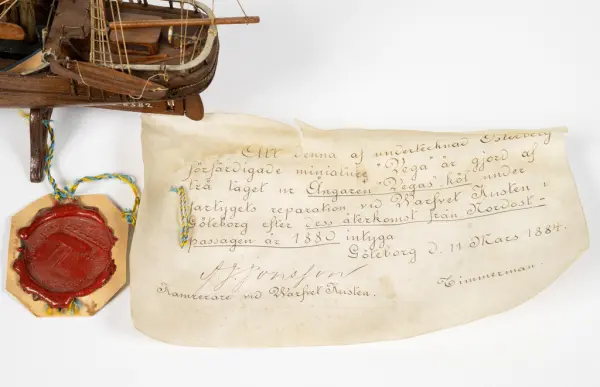 6382
Att denna af undertecknad Österberg
förfärdigade miniature "Vega" är gjord af
trä taget ur Ångaren "Vegas" köl under
fartygets reparation vid Warfvet Kusten i
Göteborg efter dess återkomst från Nordost-
passagen år 1880 intyga
Göteborg d. 11 Mars 1884.
Jonsson
Kamrerare vid Warfvet Kusten.
Timmerman.